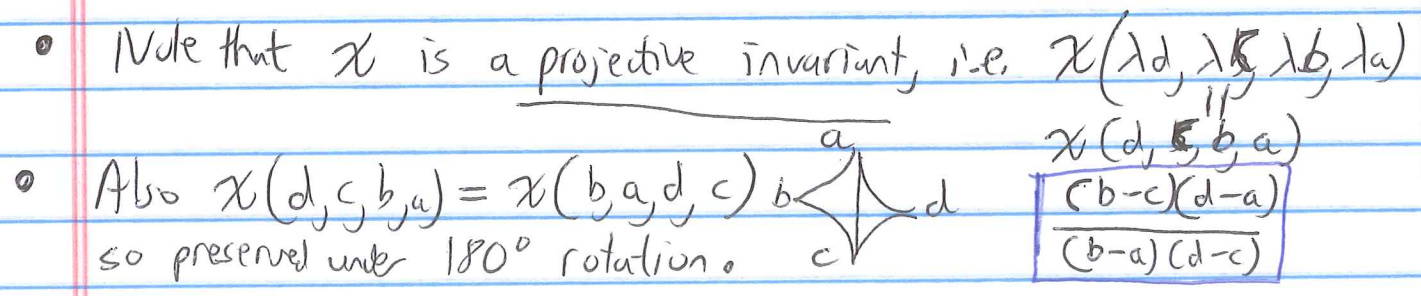 • Note that χ is a projective invariant, i.e. χ(λd, λc, λb, λa)
||
χ(d, c, b, a)
• Also χ(d,c,b,a) = χ(b,a,d,c)
a
b
d
c
so preserved under 180° rotation.
(b-c)(d-a)
(b-a)(d-c)